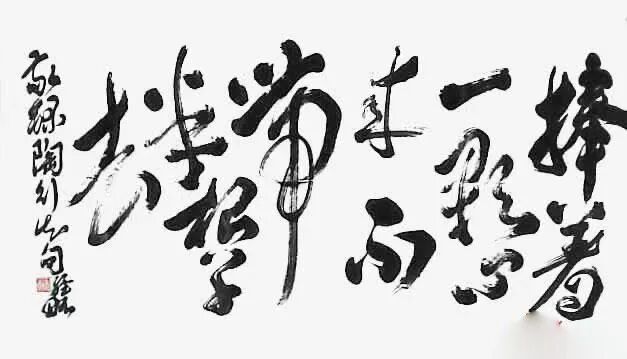 捧着
一颗心
来不
带
半根草
去
敬录陶行知句